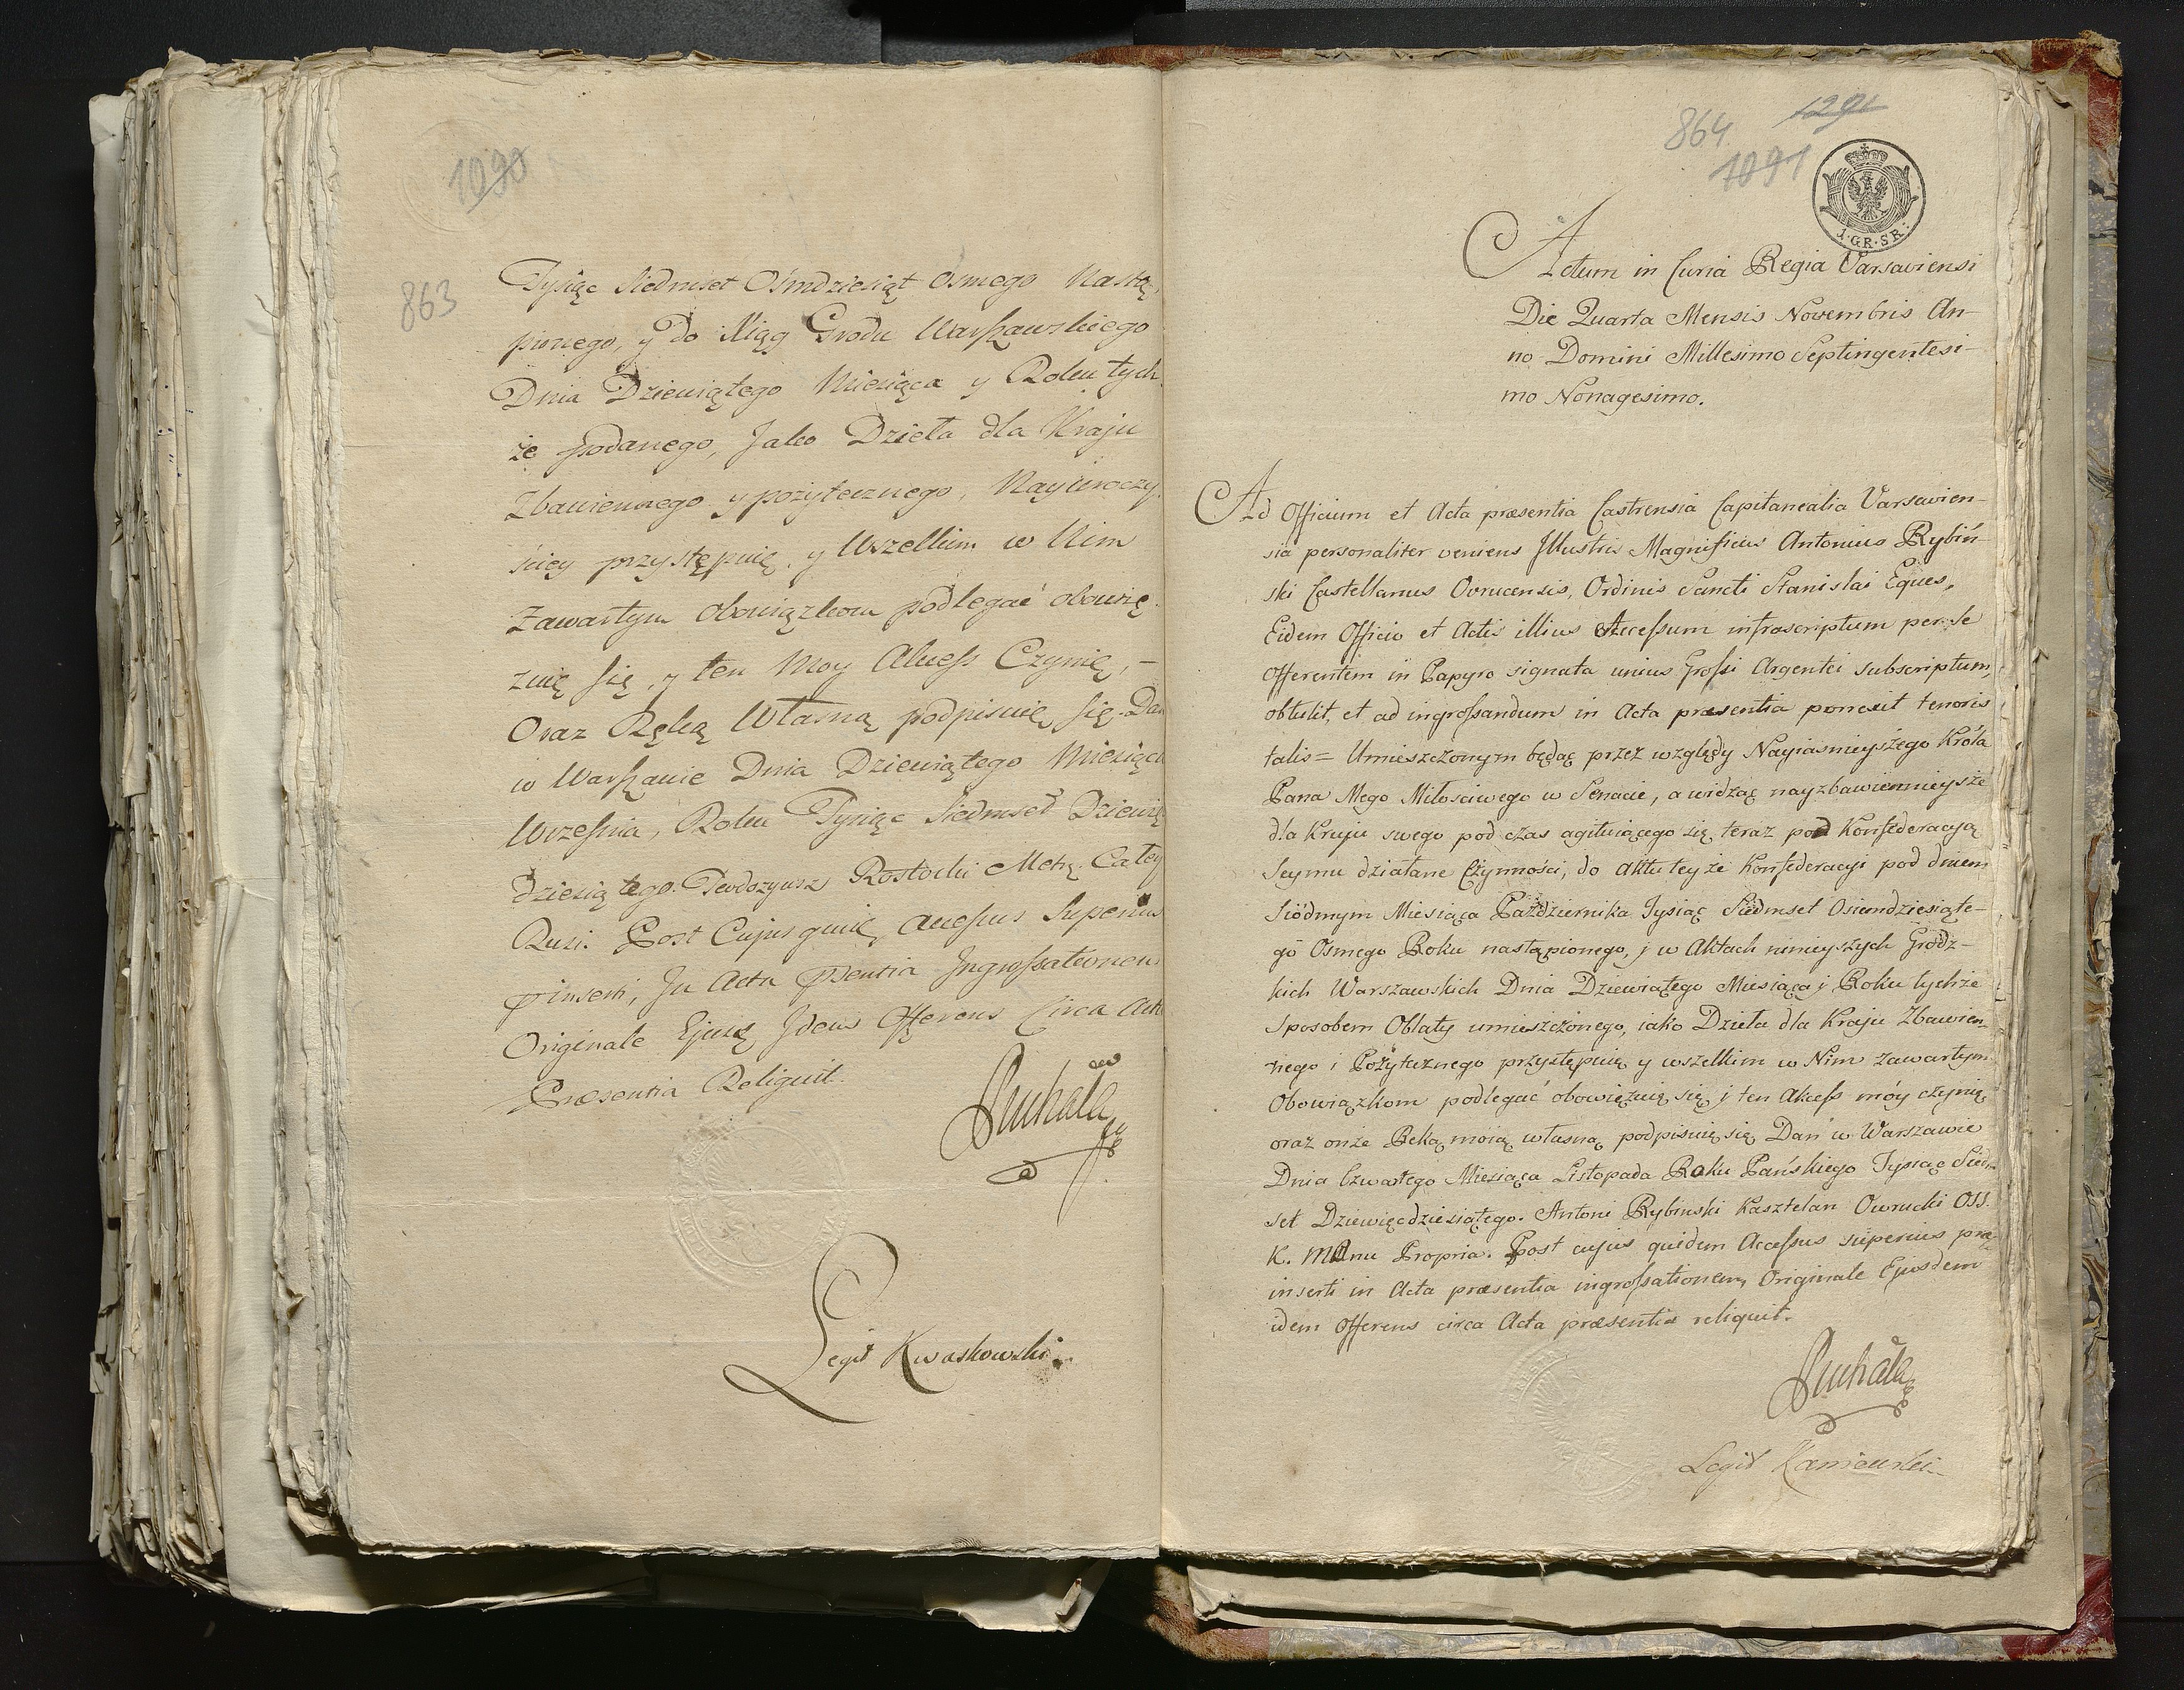 1090
863
Tysiąc Siedmset Ośmdziesiąt Osmego Nastą,
pionego, y do Xiąg Grodu Warszawskiego
Dnia Dziewiątego Miesiąca y Roku tych
że podanego, Jako Dzieła dla Kraju
Zbawiennego y pożytecznego, Nayuroczy,
ściey przystępuię, y Wszelkim w Nim
Zawartym obowiązkom podlegać obowię,
zuię się, y ten Moy Akcess Czynię, —
Oraz Ręką Własną podpisuię się. Dan
w Warszawie Dnia Dziewiątego Miesiąca
Września, Roku Tysiąc Siedmset Dziewię
dziesiątego. Teodozyusz Rostocki Metr. Całey
Rusi. Post Cujus quid. Accessus Superius
pinserti, In Acta psentia Ingrossationem
Originale Ejusd. Idem Offerens Circa Acta
Præsentia Reliquit.
Legit Kwaskowski.
1291
864
1091
1·GR·SR:
Actum in Curia Regia Varsaviensi
Die Quarta Mensis Novembris An-
no Domini Millesimo Septingentesi-
mo Nonagesimo.
Ad Officium et Acta præsentia Castrensia Capitanealia Varsavien-
sia personaliter veniens Illustris Magnificus Antonius Rybiń-
ski Castellanus Ovrucensis, Ordinis Sancti Stanislai Eques,
Eidem Officio et Actis illius Accessum infrascriptum per se
Offerentem in Papyro signata unius Grossi Argentei subscriptum,
obtulit, et ad ingrossandum in Acta præsentia porrexit tenoris
talis = Umieszczonym będąc przez względy Nayiasnieyszego Króla
Pana Mego Miłosciwego w Senacie, a widząc nayzbawiennieysze
dla Kraju swego pod czas agituiącego się teraz pod Konfederacyą
Seymu działane Czynności, do Aktu teyże Konfederacyi pod dniem
Siódmym Miesiąca Października Tysiąc Siedmset Osiemdziesiąte-
go Osmego Roku nastąpionego, j w Aktach ninieyszych Grodz-
kich Warszawskich Dnia Dziewiątego Miesiąca j Roku tychże
Sposobem Oblaty umieszczonego, iako Dzieła dla Kraju Zbawien-
nego i Pożytecznego przystępuię y wszelkim w Nim zawartym
Obowiązkom podlegać obowięzuię się j ten Akcess móy czynię
oraz onże Ręką moią własną podpisuię się Dan w Warszawie
Dnia Czwartego Miesiąca Listopada Roku Pańskiego Tysiąc Siedm-
set Dziewięćdziesiątego. Antoni Rybinski Kasztelan Owrucki OSS.
K. Manu Propria. Post cujus quidem Accessus superius præ-
inserti in Acta præsentia ingrossationem, Originale Ejusdem
idem Offerens circa Acta præsentia reliquit.
Legit Kaniewski